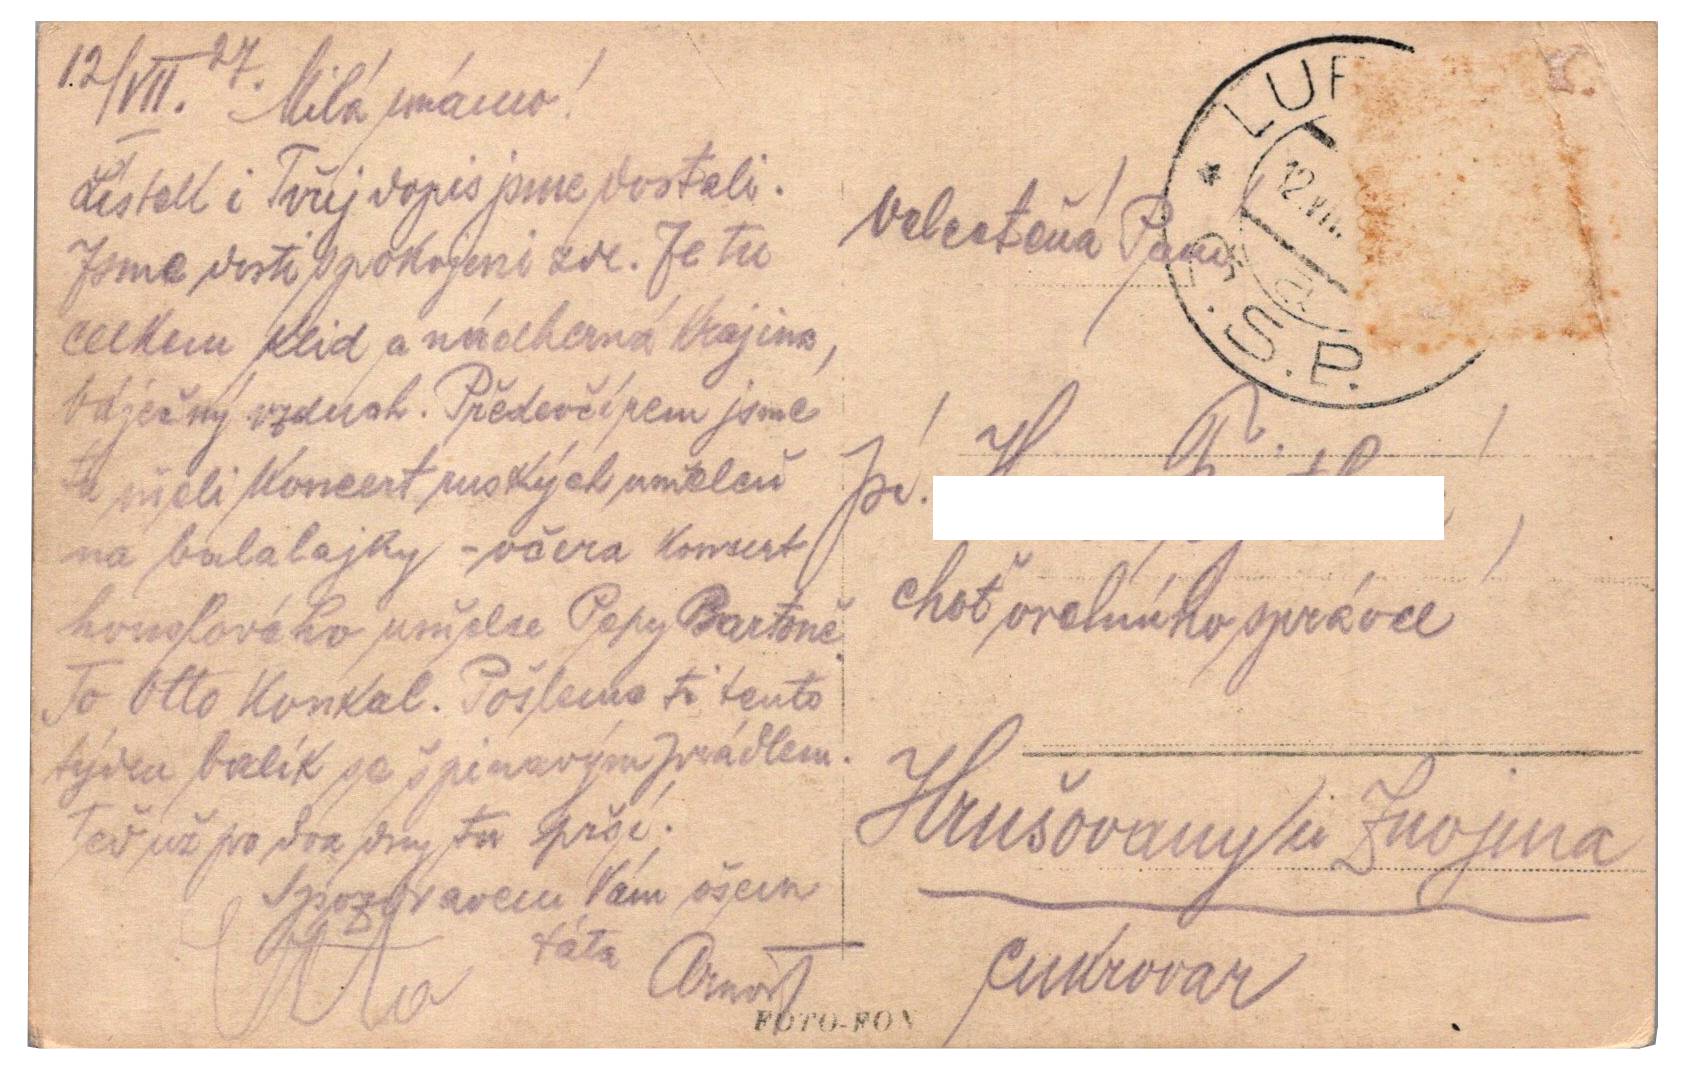 12/VII. 27. Milá mámo!
Lístek i Tvůj dopis jsme dostali.
Jsme dosti spokojeni zde. Je tu
celkem klid a nádherná krajina,
báječný vzduch. Předevčírem jsme
tu měli koncert ruských umělců
na balalajky - včera koncert
houslového umělce Pepy Bartoně.
To Otto koukal. Pošleme ti tento
týden balík se špinavým prádlem.
Teď už po dva dny tu prší.
S pozdravem Vám všem
táta Arnošt
Otto
FOTO-FON
LUH
12.VII.
Č.S.P.
Velectěná Paní
pí.
choť vrchního správce
Hrušovany u Znojma
cukrovar